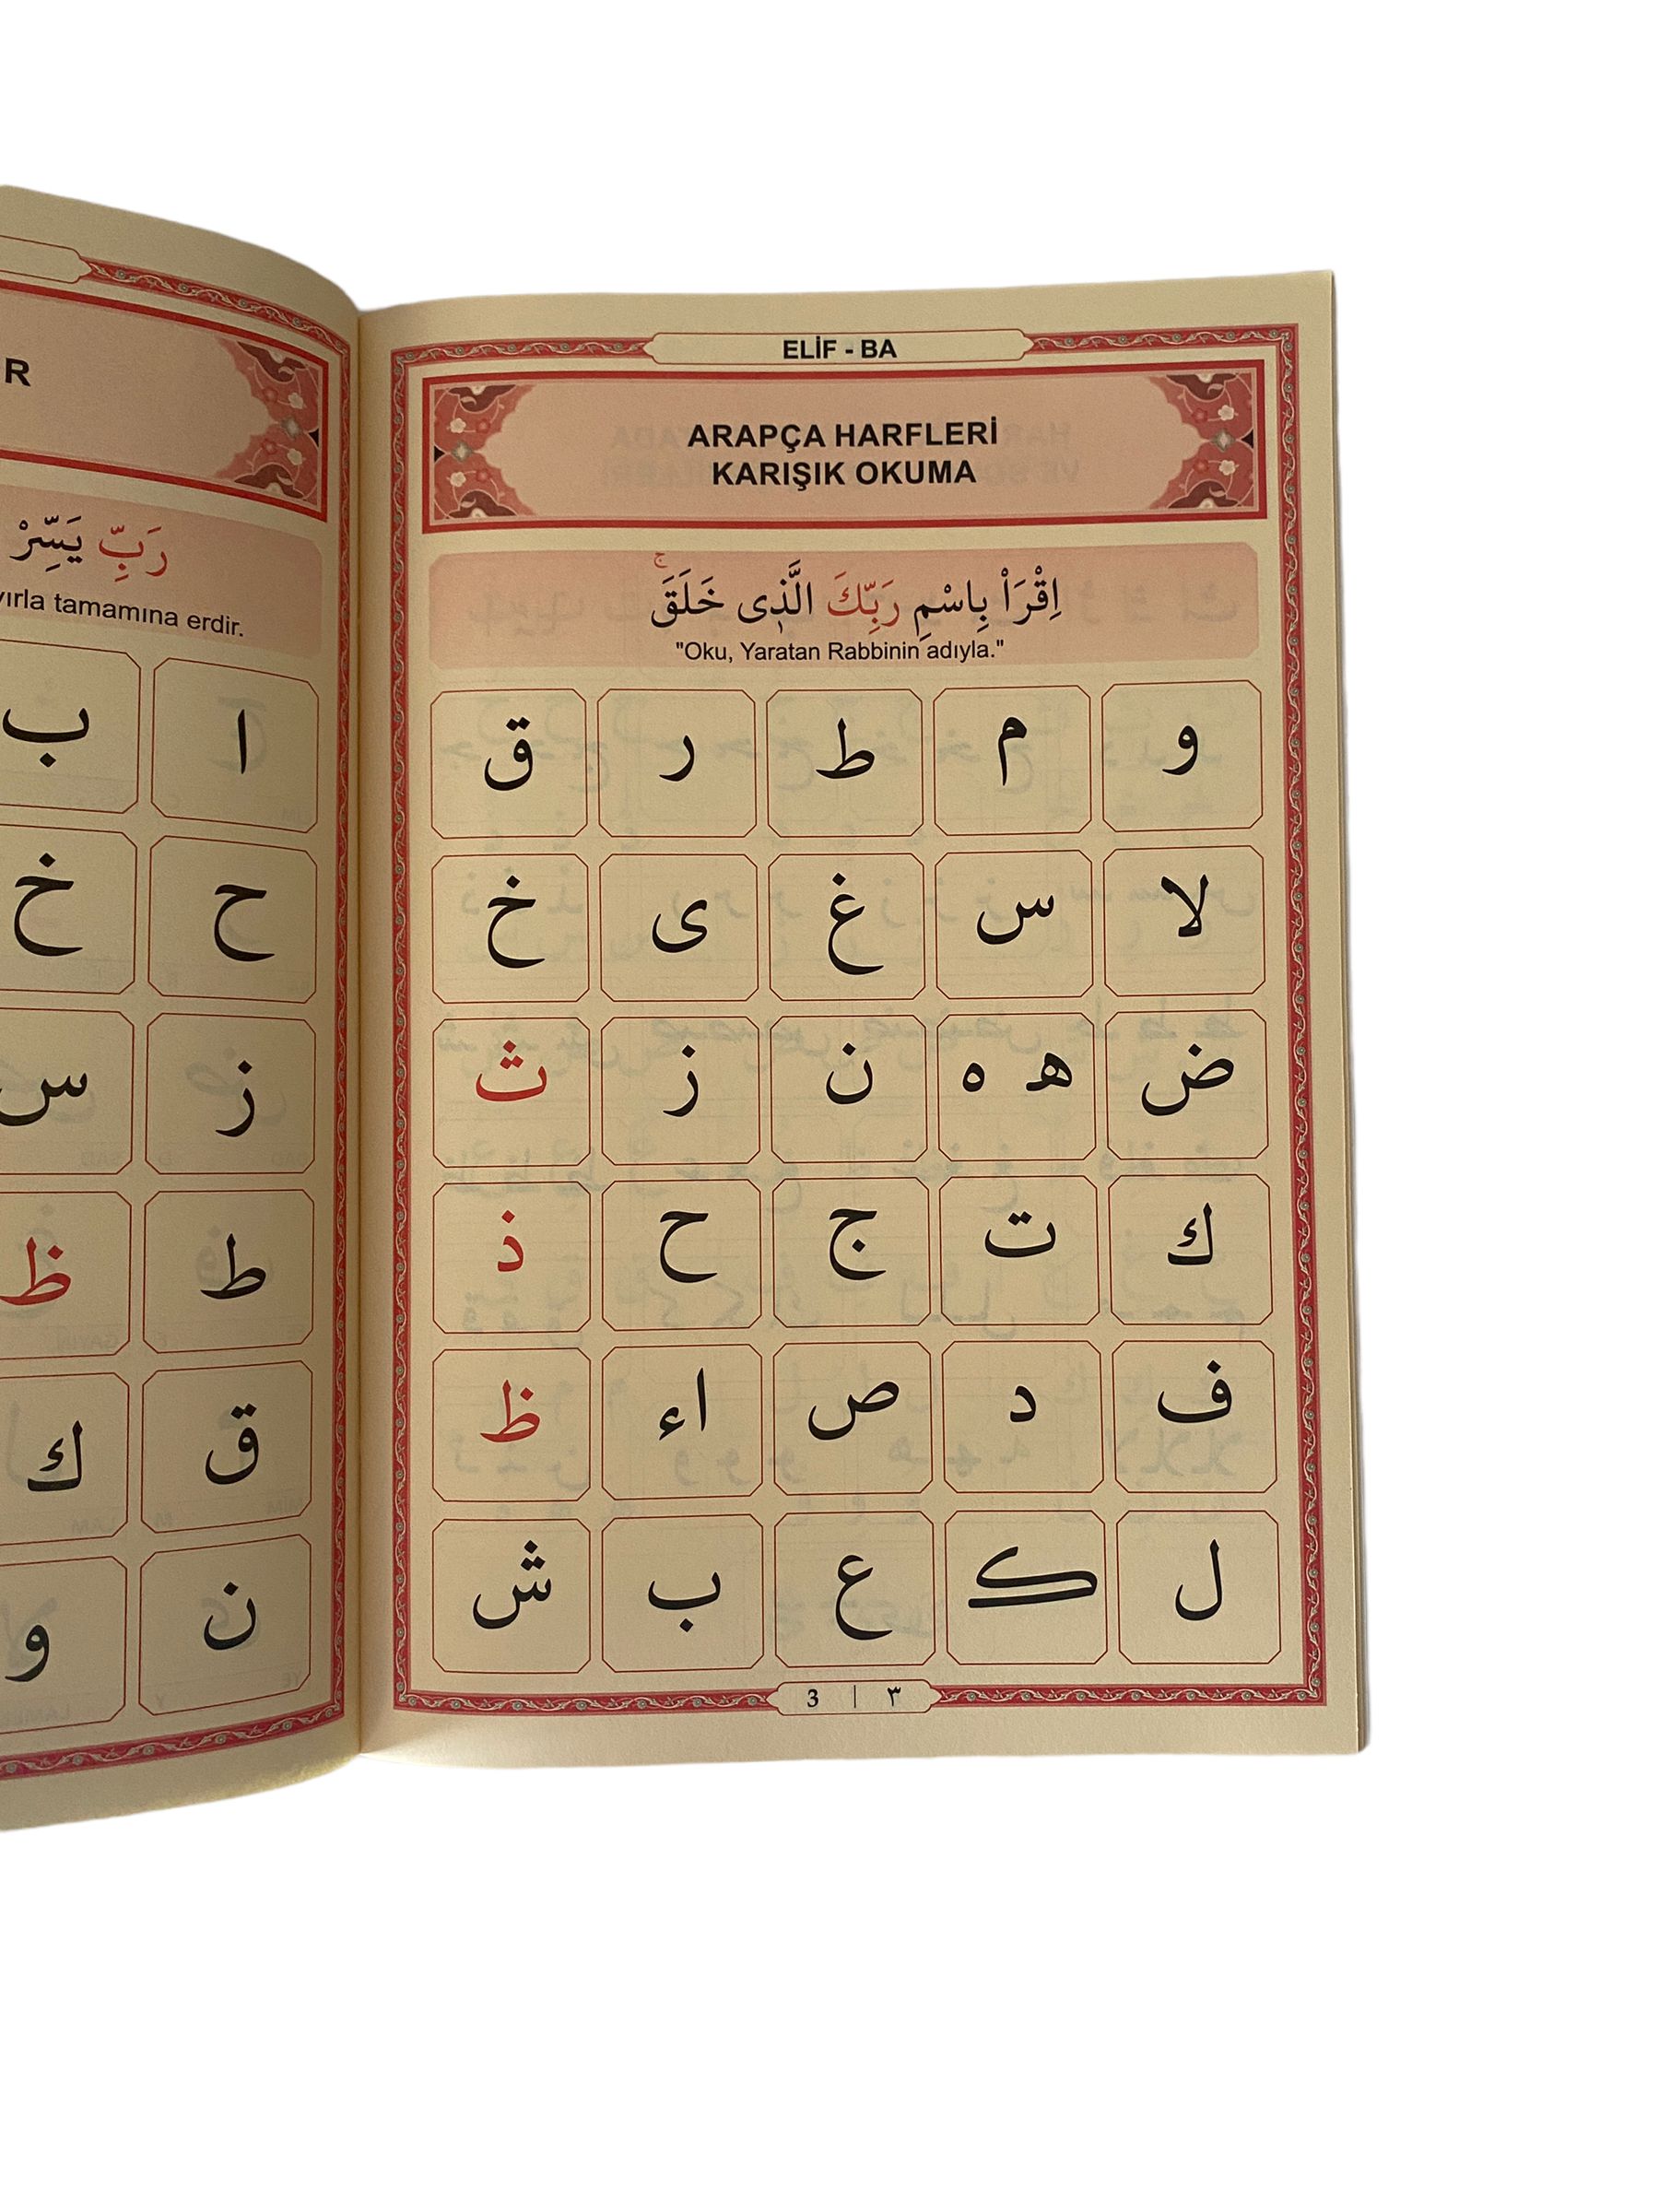 R
رَبِّ يَسِّرْ
tamamına erdir.
ا ب
ح خ
ز س
ط ظ
ق ك
ن و
ELİF - BA
ARAPÇA HARFLERİ
KARIŞIK OKUMA
اِقْرَاْ بِاسْمِ رَبِّكَ الَّذٖى خَلَقَۚ
"Oku, Yaratan Rabbinin adıyla."
و م ط ر ق
لا س غ ى خ
ض ه ه ن ز ث
ك ت ج ح ذ
ف د ص اء ظ
ل ڪ ع ب ش
3 | ٣